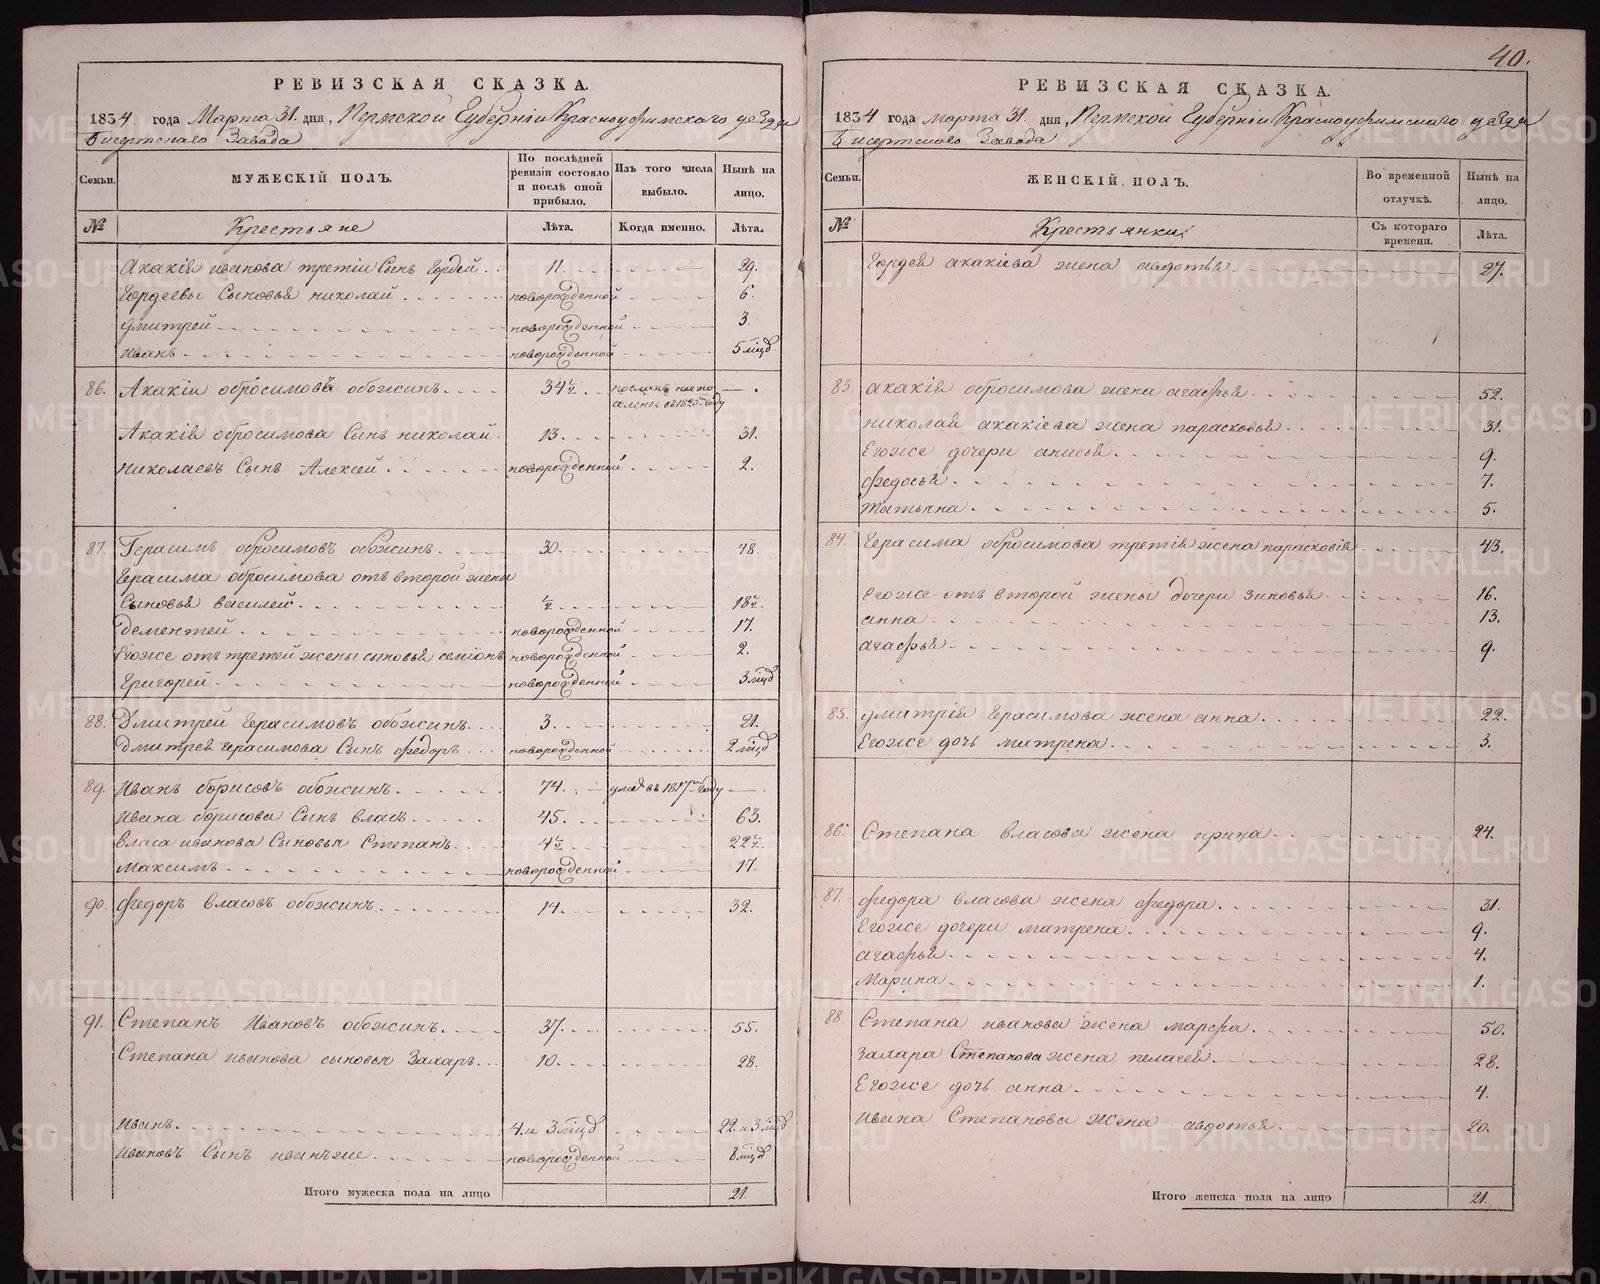 40.
РЕВИЗСКАЯ СКАЗКА.
1834. года Марта 31. дня, Пермской Губерніи Красноуфимского уезда
Бисертского Завода
Семьи.
МУЖЕСКІЙ ПОЛЪ.
По послѣдней ревизіи состояло и послѣ оной прибыло.
Изъ того числа выбыло.
Нынѣ на лицо.
№
Крестьяне
Лѣта.
Когда именно.
Лѣта.
Акакія иванова третіи Сынъ Гордей 11. 29.
Гордеевы Сыновья николай новорожденной 6.
дмитрей новорожденной 3.
иванъ новорожденной 5 мцд
86. Акакіи обросимовъ обожинъ 34½ посланъ на по
селенье въ 1825 году
Акакія обросимова Сынъ николай 13. 31.
николаевъ Сынъ Алексей новорожденной 2.
87. Герасимъ обросимовъ обожинъ 30. 48.
Герасима обросимова отъ второй жены
Сыновья василей ½ 18½.
дементей новорожденной 17.
Егоже отъ третей жены сыновья семіонъ новорожденной 2.
Григорей новорожденной 3 мцд
88. Дмитрей Герасимовъ обожинъ 3. 21.
дмитрея Герасимова Сынъ федоръ новорожденной 2 мцд
89. Иванъ борисовъ обожинъ 74. умре въ 1817 году
ивана борисова Сынъ власъ 45. 63.
власа иванова Сыновья Степанъ 4½ 22½.
Максимъ новорожденной 17.
90. Федоръ власовъ обожинъ 14. 32.
91. Степанъ Ивановъ обожинъ 37. 55.
Степана иванова сыновья Захаръ 10. 28.
Иванъ 4. и 3 мцд 22. и 3 мцд
ивановъ Сынъ иванъже новорожденной 8 мцд
Итого мужеска пола на лицо 21.
РЕВИЗСКАЯ СКАЗКА.
1834 года марта 31. дня, Пермской Губерніи Красноуфимского уезда
Бисертского Завода
Семьи.
ЖЕНСКІЙ ПОЛЪ.
Во временной отлучкѣ.
Нынѣ на лицо.
№
Крестьянки
Съ котораго времени.
Лѣта.
Гордея акакіева жена авдотья 27.
83. акакія обросимова жена агафья 52.
николая акакіева жена парасковья 31.
Егоже дочери анисья 9.
федосья 7.
татьяна 5.
84. Герасима обросимова третія жена парасковія 43.
Егоже отъ второй жены дочери зиновья 16.
анна 13.
агафья 9.
85. дмитрія Герасимова жена анна 22.
Егоже дочь матрена 3.
86. Степана власова жена ирина 24.
87. федора власова жена федора 31.
Егоже дочери матрена 9.
агафья 4.
Марина 1.
88. Степана иванова жена марфа 50.
Захара Степанова жена пелагея 28.
Егоже дочь анна 4.
Ивана Степанова Жена авдотья 20.
Итого женска пола на лицо 21.
METRIKI.GASO-URAL.RU